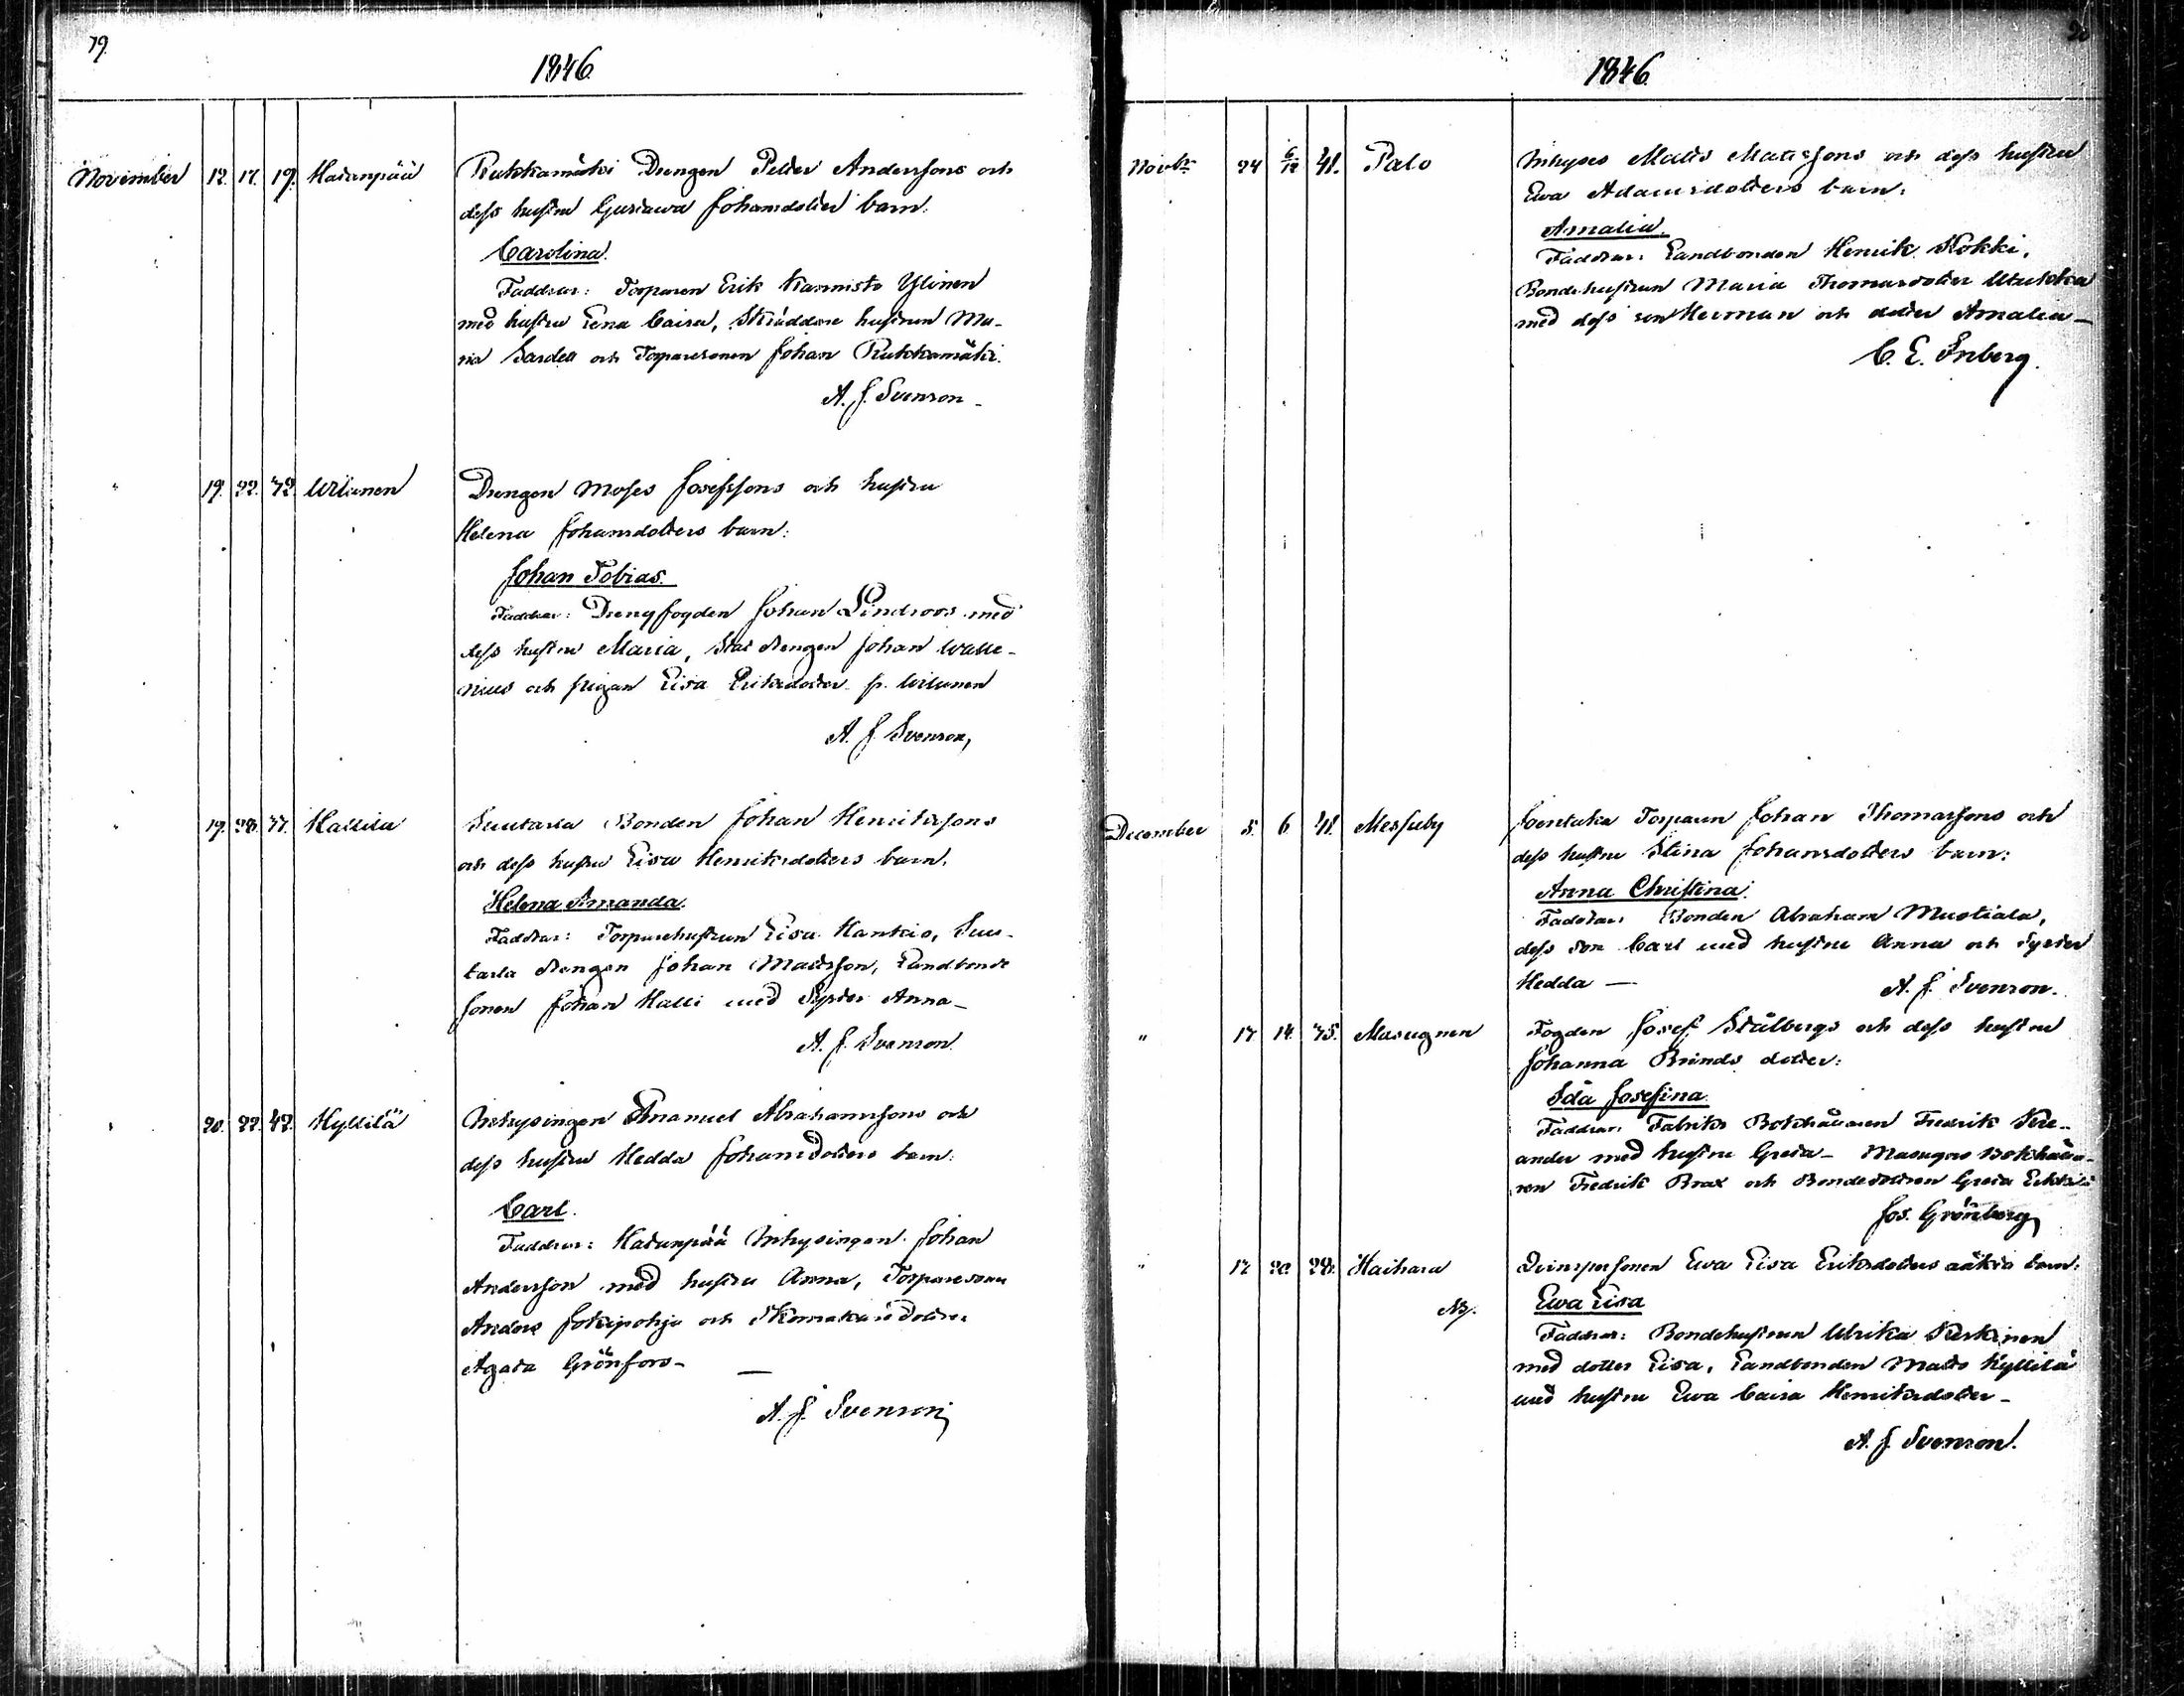 19.
1846.
November 12. 17. 19. Hatanpää Rukkamäki Drengen Petter Anderssons och
dess hustru Gustawa Johansdotter barn:
Carolina.
Faddrar: Torparen Erik Kannisto Ylinen
med hustru Lena Caisa, Skräddare hustrun Ma-
ria Sardell och Torparesonen Johan Rukkamäki.
A. J. Svenson -
" 19. 22. 42. Wilunen Drengen Moses Josefssons och hustru
Helena Johansdotters barn:
Johan Tobias.
Faddrar: Drengfogden Johan Lindroos med
dess hustru Maria, Stat drengen Johan Walle-
nius och pigan Lisa Eriksdotter fr. Wilunen
A. J Svenson,
" 19. 28. 37. Hallila Suutarla Bonden Johan Henrikssons
och dess hustru Lisa Henriksdotters barn,
Helena Amanda.
Faddrar: Torparehustrun Lisa Hankio, Suu-
tarla drengen Johan Mattsson, Landbonde
sonen Johan Halli med Syster Anna -
A. J. Svenson
" 20. 22. 42. Hyllilä Inhysingen Emanuel Abrahamssons och
dess hustru Hedda Johansdotters barn:
Carl.
Faddrar: Hatanpää Inhysingen Johan
Andersson med hustru Anna, Torparesonen
Anders Jokipohja och dottren
Agata Grönfors -
A. J. Svenson
1846.
Novbr 24 6/12 41. Palo Inhyses Matts Matssons och dess hustru
Ewa Adamsdotters barn:
Amalia.
Faddrar: Landbonden Henrik Kokki,
Bondehustrun Maria Thomasdotter Utukka
med dess son Herman och dotter Amalia -
C. E. Enberg.
December 5. 6 41. Messuby Torparen Johan Thomassons och
dess hustru Stina Johansdotters barn:
Anna Christina.
Faddrar: Bonden Abraham Mustiala,
dess son Carl med hustru Anna och Syster
Hedda - A. J. Svenson.
" 17. 14. 45. Masugnen Fogden Josef Stålbergs och dess hustru
Johanna Brinds dotter:
Ida Josefina.
Faddrar: Fabriks Bokhållaren Fredrik
ander med hustru Greta - Masugns Bokhålla-
ren Fredrik Brax och Bondedottren Greta
Jos. Grönberg
" 12 20. 28. Haihara Qvinspersonen Ewa Lisa Eriksdotters oäkta barn:
Ewa Lisa
Faddrar: Bondehustrun Ulrika Keskinen
med dotter Lisa, Landbonden Matts Hyllilä
med hustru Ewa Caisa Henriksdotter -
A. J. Svenson.